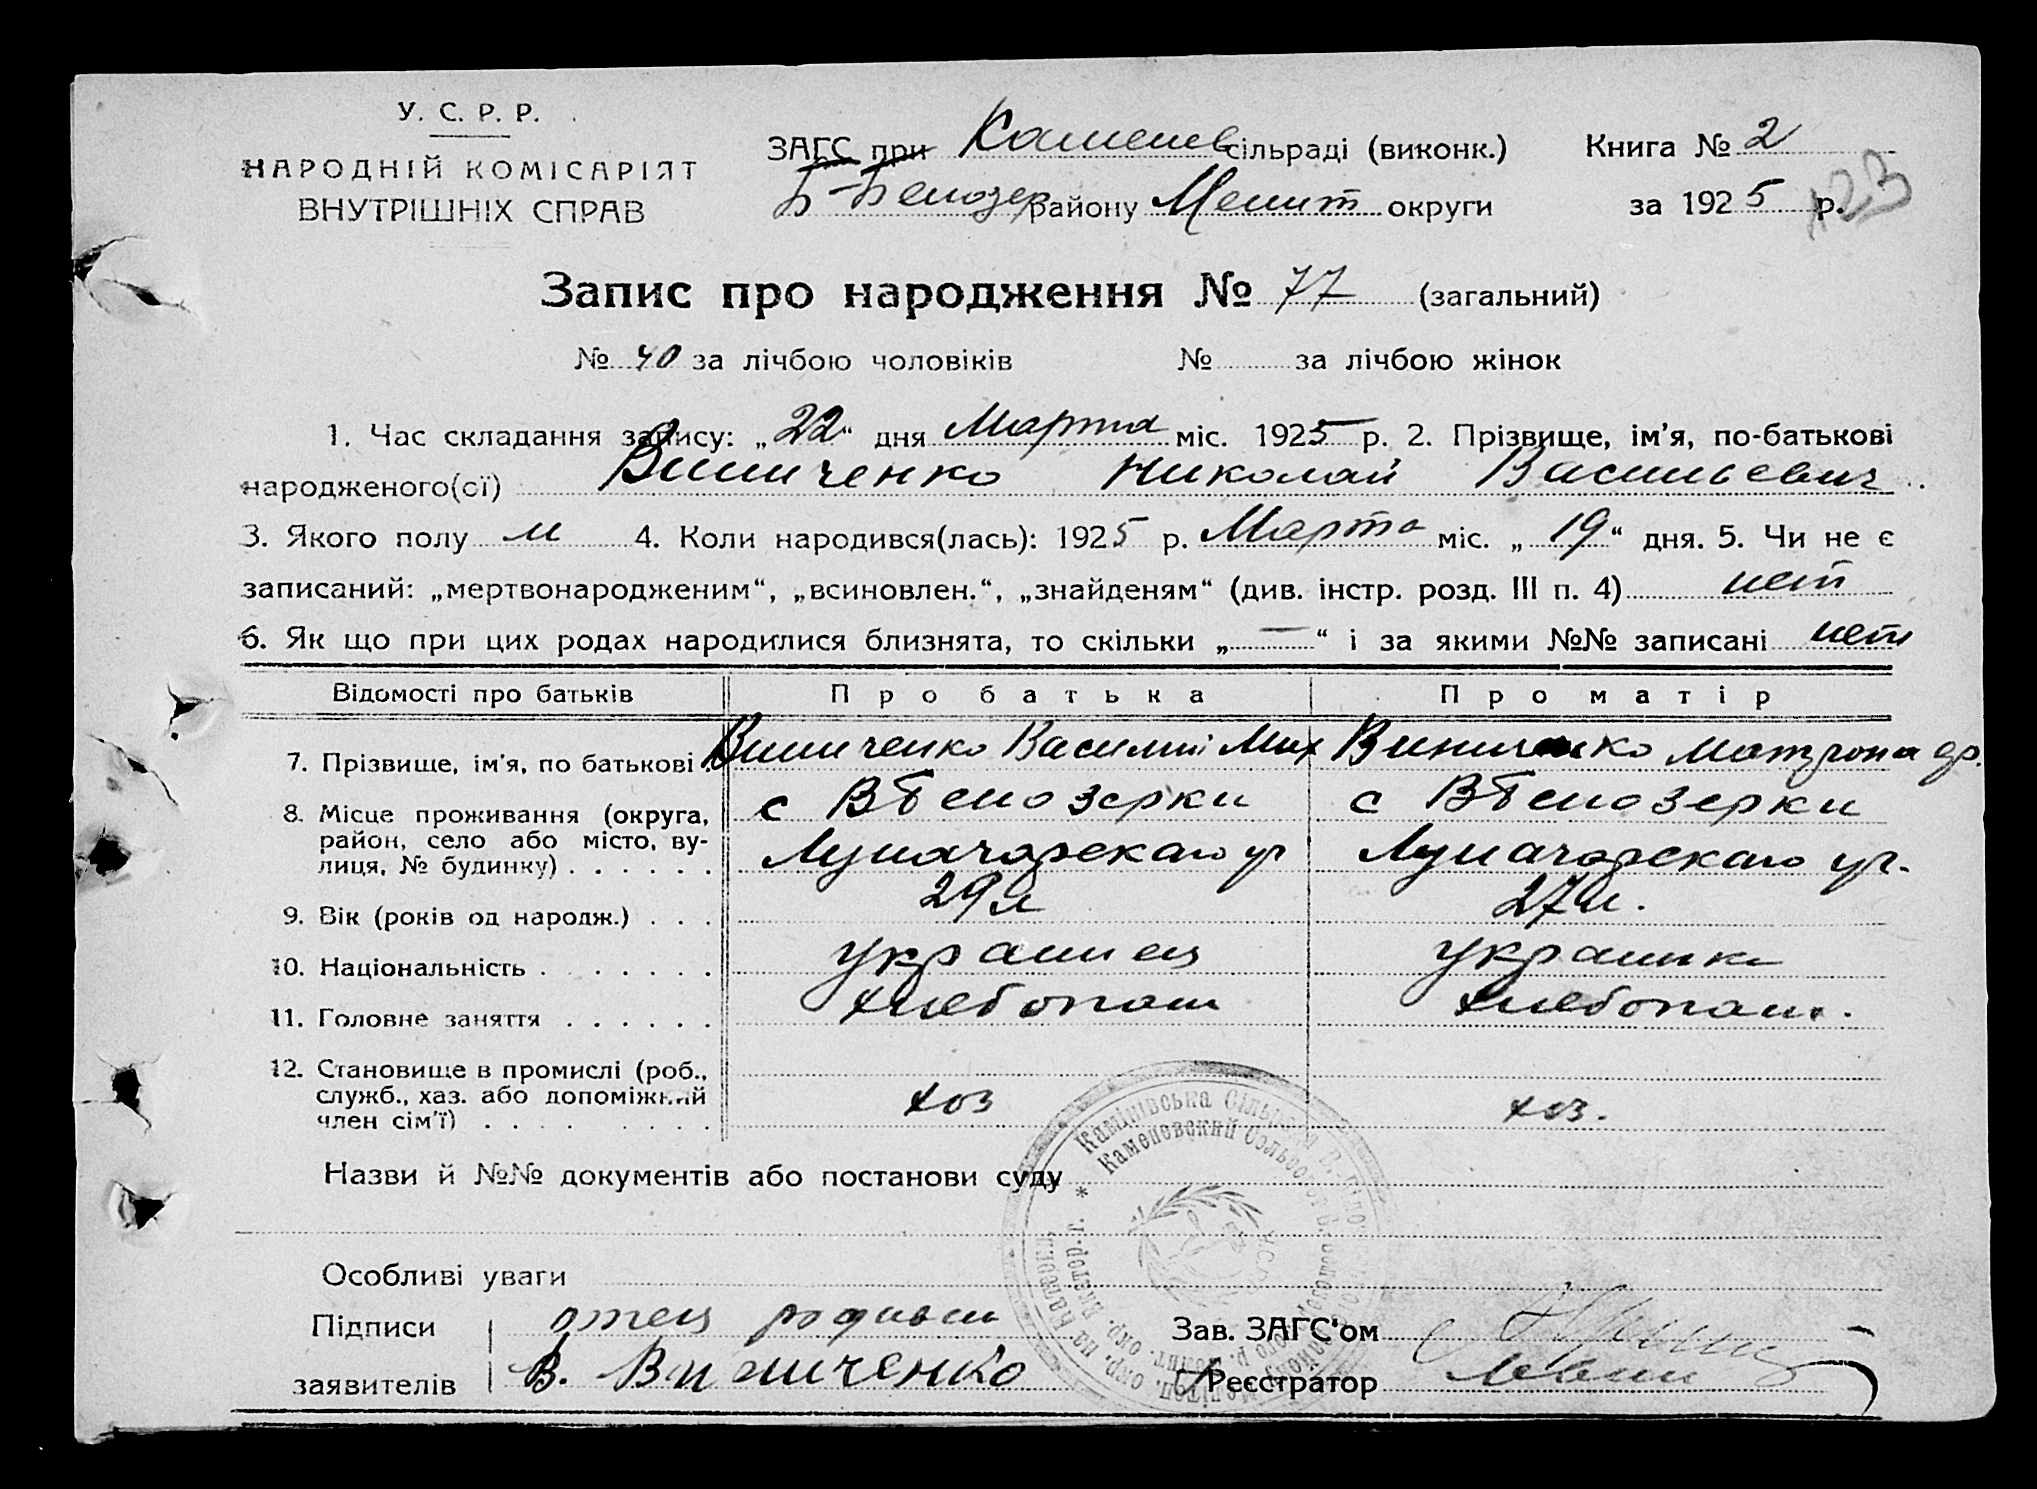 У. С. Р. Р.
НАРОДНІЙ КОМІСАРІЯТ
ВНУТРІШНІХ СПРАВ
ЗАГС при Каменев сільраді (виконк.) Книга № 2
Б-Белозер району Мелит округи за 1925 р.
123
Запис про народження № 77 (загальний)
№ 40 за лічбою чоловіків № за лічбою жінок
1. Час складання запису: „22“ дня Марта міс. 1925 р. 2. Прізвище, ім’я, по-батькові
народженого(сї) Винниченко Николай Васильевич
3. Якого полу м 4. Коли народився(лась): 1925 р. Марта міс. „19“ дня. 5. Чи не є
записаний: „мертвонародженим“, „всиновлен.“, „знайденям“ (див. інстр. розд. III п. 4) нет
6. Як що при цих родах народилися близнята, то скільки „—“ і за якими №№ записані нет
Відомості про батьків Про батька Про матір
7. Прізвище, ім’я, по батькові Винниченко Василий Мих Винниченко Матрона
8. Місце проживання (округа, с ВБелозерки с ВБелозерки
район, село або місто, ву-
лиця, № будинку) Луначарскаго ул Луначарскаго ул.
9. Вік (років од народж.) 29л 27л.
10. Національність украинец украинка
11. Головне заняття хлебопаш хлебопаш.
12. Становище в промислі (роб.,
служб., хаз. або допоміжний хоз хоз.
член сім’ї)
Назви й №№ документів або постанови суду
Особливі уваги
Підписи отец
заявителів В. Винниченко
Зав. ЗАГС‘ом
Реєстратор
Камінівська Сільрада
Каменевский